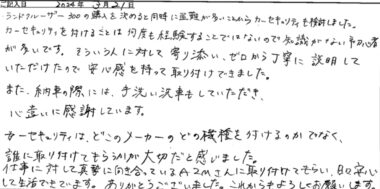 ご記入日 2024年 3月21日
ランドクルーザー300の購入を決めると同時に盗難が多いことからカーセキュリティを検討しました。
カーセキュリティを付けることは何度も経験することではないので知識がない初心者
が多いです。そういう人に対して寄り添い、ゼロから丁寧に説明して
いただけたので安心感を持って取り付けできました。
また、納車の際には、手洗い洗車もしていただき、
心遣いに感謝しています。
カーセキュリティは、どこのメーカーのどの機種を付けるのかでなく、
誰に取り付けてもらうかが大切だと感じました。
仕事に対して真摯に向き合っているA2Mさんに取り付けてもらい、日々安心
して生活できています。ありがとうございました。これからもよろしくお願いします。